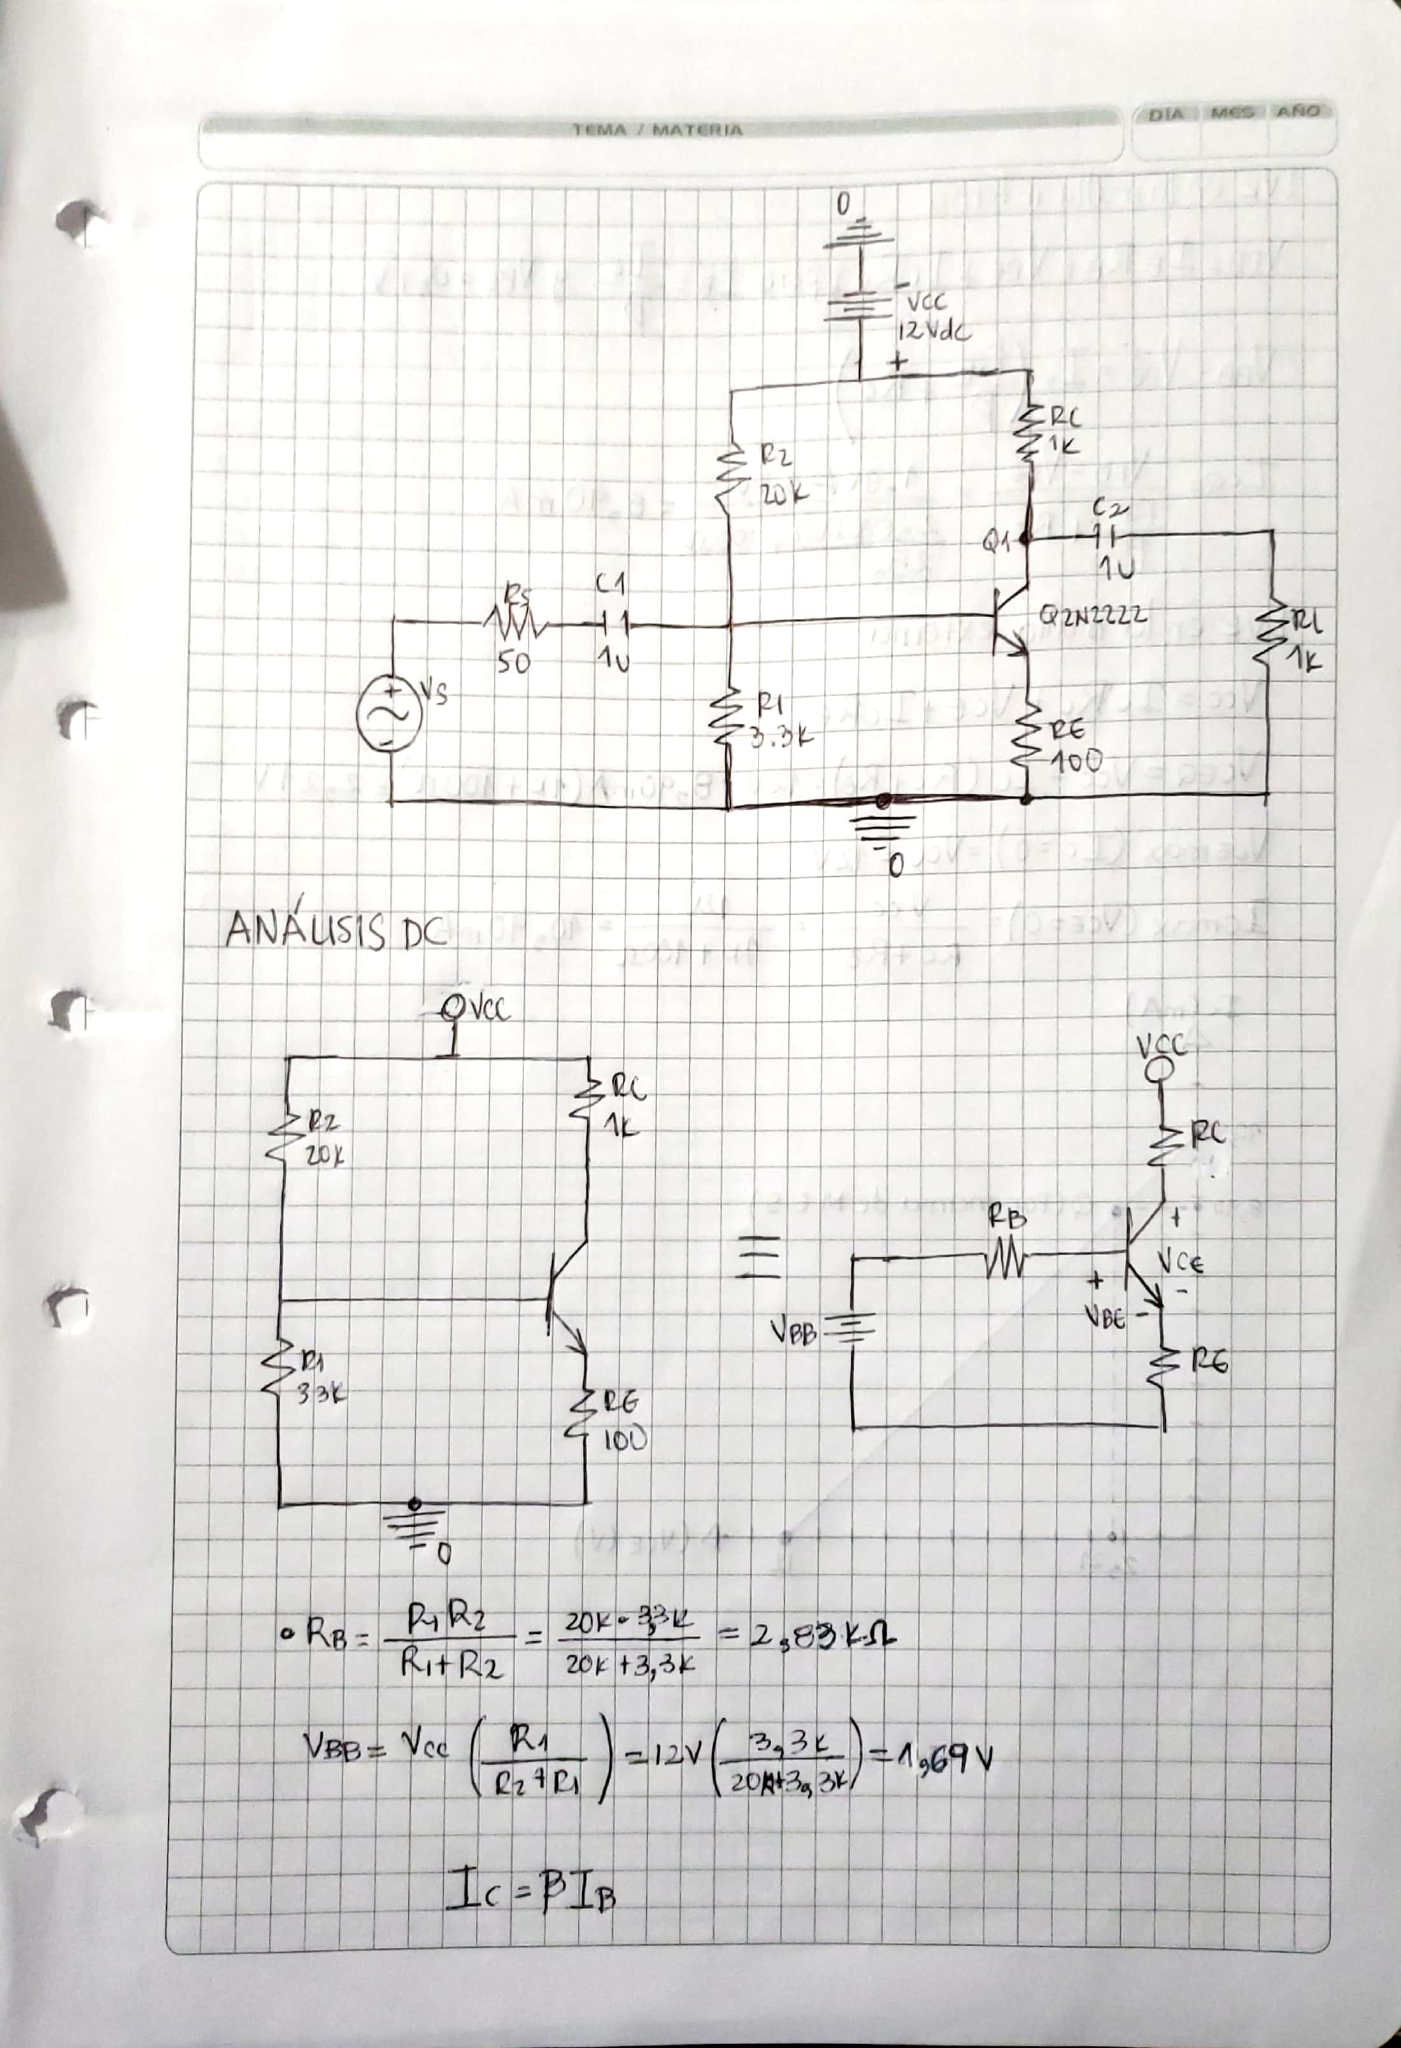 TEMA / MATERIA
DÍA MES AÑO
0
-
VCC
12Vdc
+
R2
20K
RC
1K
C2
Q1
1U
RS
C1
Q2N2222
50
1U
RL
1K
+
VS
-
R1
3.3K
RE
100
0
ANÁLISIS DC
VCC
RC
1K
R2
20K
R1
33K
RE
100
0
=
VCC
RC
RB
+
VCE
-
+
VBE -
VBB
RE
• RB = R1 R2 / R1+R2 = 20K • 3,3K / 20K+3,3K = 2,83 KΩ
VBB = Vcc (R1 / R2+R1) = 12V (3,3K / 20K+3,3K) = 1,69 V
IC = βIB